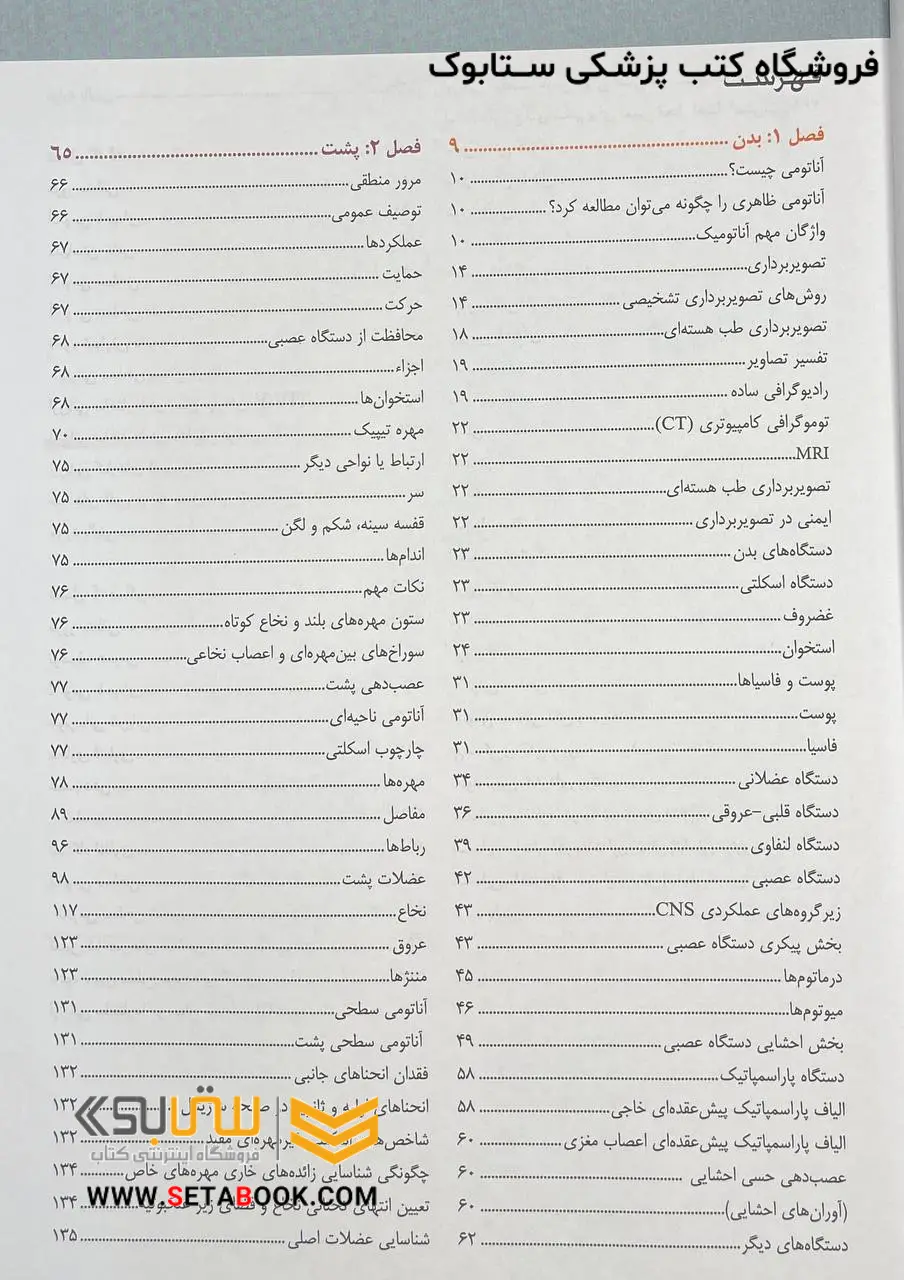 فروشگاه کتب پزشکی ستابوک
فهرست
فصل ۱: بدن ... ۹
آناتومی چیست؟ ... ۱۰
آناتومی ظاهری را چگونه می‌توان مطالعه کرد؟ ... ۱۰
واژگان مهم آناتومیک ... ۱۰
تصویربرداری ... ۱۴
روش‌های تصویربرداری تشخیصی ... ۱۴
تصویربرداری طب هسته‌ای ... ۱۸
تفسیر تصاویر ... ۱۹
رادیوگرافی ساده ... ۱۹
توموگرافی کامپیوتری (CT) ... ۲۲
MRI ... ۲۲
تصویربرداری طب هسته‌ای ... ۲۲
ایمنی در تصویربرداری ... ۲۲
دستگاه‌های بدن ... ۲۳
دستگاه اسکلتی ... ۲۳
غضروف ... ۲۳
استخوان ... ۲۴
پوست و فاسیاها ... ۳۱
پوست ... ۳۱
فاسیا ... ۳۱
دستگاه عضلانی ... ۳۴
دستگاه قلبی-عروقی ... ۳۶
دستگاه لنفاوی ... ۳۹
دستگاه عصبی ... ۴۲
زیرگروه‌های عملکردی CNS ... ۴۳
بخش پیکری دستگاه عصبی ... ۴۳
درماتوم‌ها ... ۴۵
میوتوم‌ها ... ۴۶
بخش احشایی دستگاه عصبی ... ۴۹
دستگاه پاراسمپاتیک ... ۵۸
الیاف پاراسمپاتیک پیش‌عقده‌ای خاجی ... ۵۸
الیاف پاراسمپاتیک پیش‌عقده‌ای اعصاب مغزی ... ۶۰
عصب‌دهی حسی احشایی ... ۶۰
(آوران‌های احشایی) ... ۶۰
دستگاه‌های دیگر ... ۶۲
فصل ۲: پشت ... ۶۵
مرور منطقی ... ۶۶
توصیف عمومی ... ۶۶
عملکردها ... ۶۷
حمایت ... ۶۷
حرکت ... ۶۷
محافظت از دستگاه عصبی ... ۶۸
اجزاء ... ۶۸
استخوان‌ها ... ۶۸
مهره تیپیک ... ۷۰
ارتباط یا نواحی دیگر ... ۷۵
سر ... ۷۵
قفسه سینه، شکم و لگن ... ۷۵
اندام‌ها ... ۷۵
نکات مهم ... ۷۶
ستون مهره‌های بلند و نخاع کوتاه ... ۷۶
سوراخ‌های بین‌مهره‌ای و اعصاب نخاعی ... ۷۶
عصب‌دهی پشت ... ۷۷
آناتومی ناحیه‌ای ... ۷۷
چارچوب اسکلتی ... ۷۷
مهره‌ها ... ۷۸
مفاصل ... ۸۹
رباط‌ها ... ۹۶
عضلات پشت ... ۹۸
نخاع ... ۱۱۷
عروق ... ۱۲۳
مننژها ... ۱۲۳
آناتومی سطحی ... ۱۳۱
آناتومی سطحی پشت ... ۱۳۱
فقدان انحناهای جانبی ... ۱۳۲
انحناهای و در صفحه ... ۱۳۲
مفید ... ۱۳۲
چگونگی شناسایی زائده‌های خاری مهره‌های خاص ... ۱۳۴
تعیین انتهای تحتانی نخاع و فضای زیر ... ۱۳۴
شناسایی عضلات اصلی ... ۱۳۵
ستابوک
فروشگاه اینترنتی کتاب
WWW.SETABOOK.COM